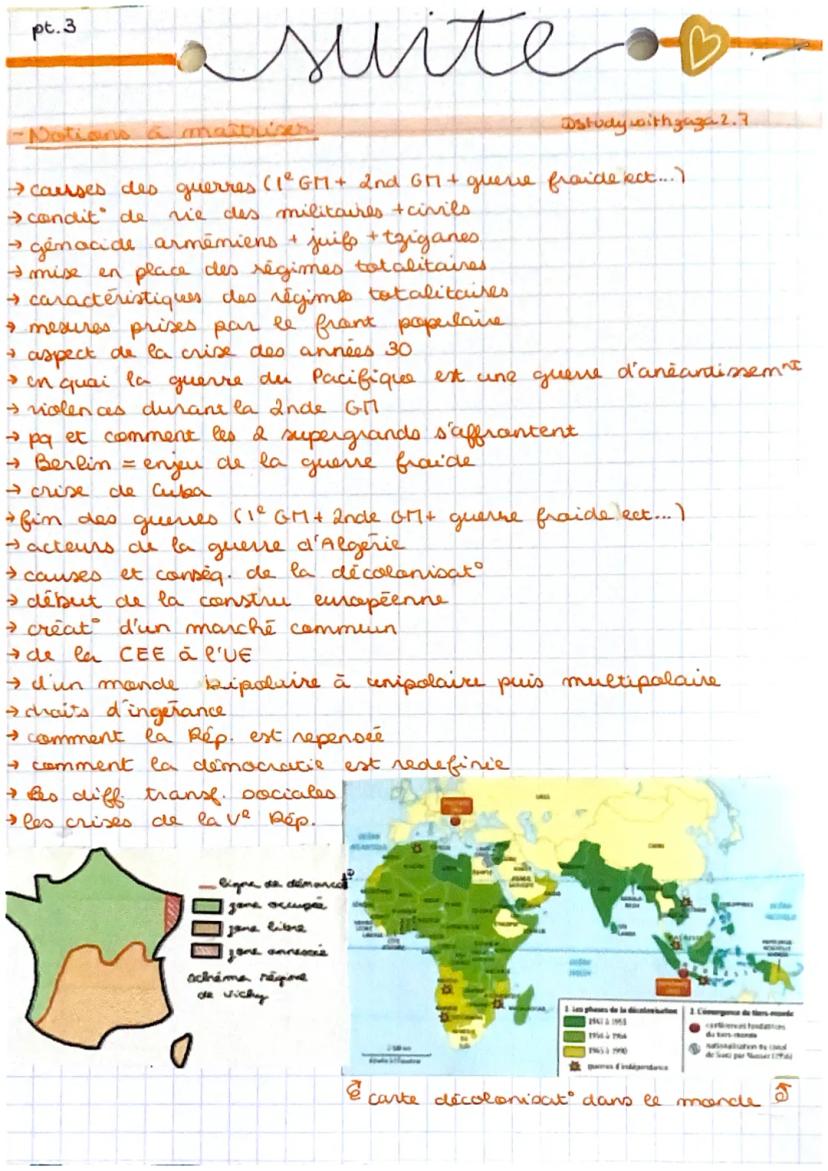 pt.3
suite
- Notions à maîtriser
@studywithzaza2.7
→ causes des guerres (1e GM + 2nd GM + guerre froide ect...)
→ condit° de vie des militaires + civils
→ génocide arméniens + juifs + tziganes
→ mise en place des régimes totalitaires
→ caractéristiques des régimes totalitaires
→ mesures prises par le front populaire
→ aspect de la crise des années 30
→ en quoi la guerre du Pacifique est une guerre d'anéantissemnt
→ violences durant la 2nde GM
→ pq et comment les 2 supergrands s'affrontent
→ Berlin = enjeu de la guerre froide
→ crise de Cuba
→ fin des guerres (1e GM + 2nde GM + guerre froide ect...)
→ acteurs de la guerre d'Algérie
→ causes et conséq. de la décolonisat°
→ début de la constru européenne
→ créat° d'un marché commun
→ de la CEE à l'UE
→ d'un monde bipolaire à unipolaire puis multipolaire
→ droits d'ingérance
→ comment la Rép. est repensée
→ comment la démocratie est redéfinie
→ les diff. transf. sociales
→ les crises de la Ve Rép.
ligne de démarcat°
zone occupée
zone libre
zone annexée
schéma régime
de Vichy
URSS
CHINE
1. Les phases de la décolonisation
1945 à 1955
1956 à 1964
1965 à 1990
guerres d'indépendance
2. L'émergence du tiers-monde
conférences fondatrices
du tiers-monde
nationalisation du canal
de Suez par Nasser (1956)
carte décolonisat° dans le monde